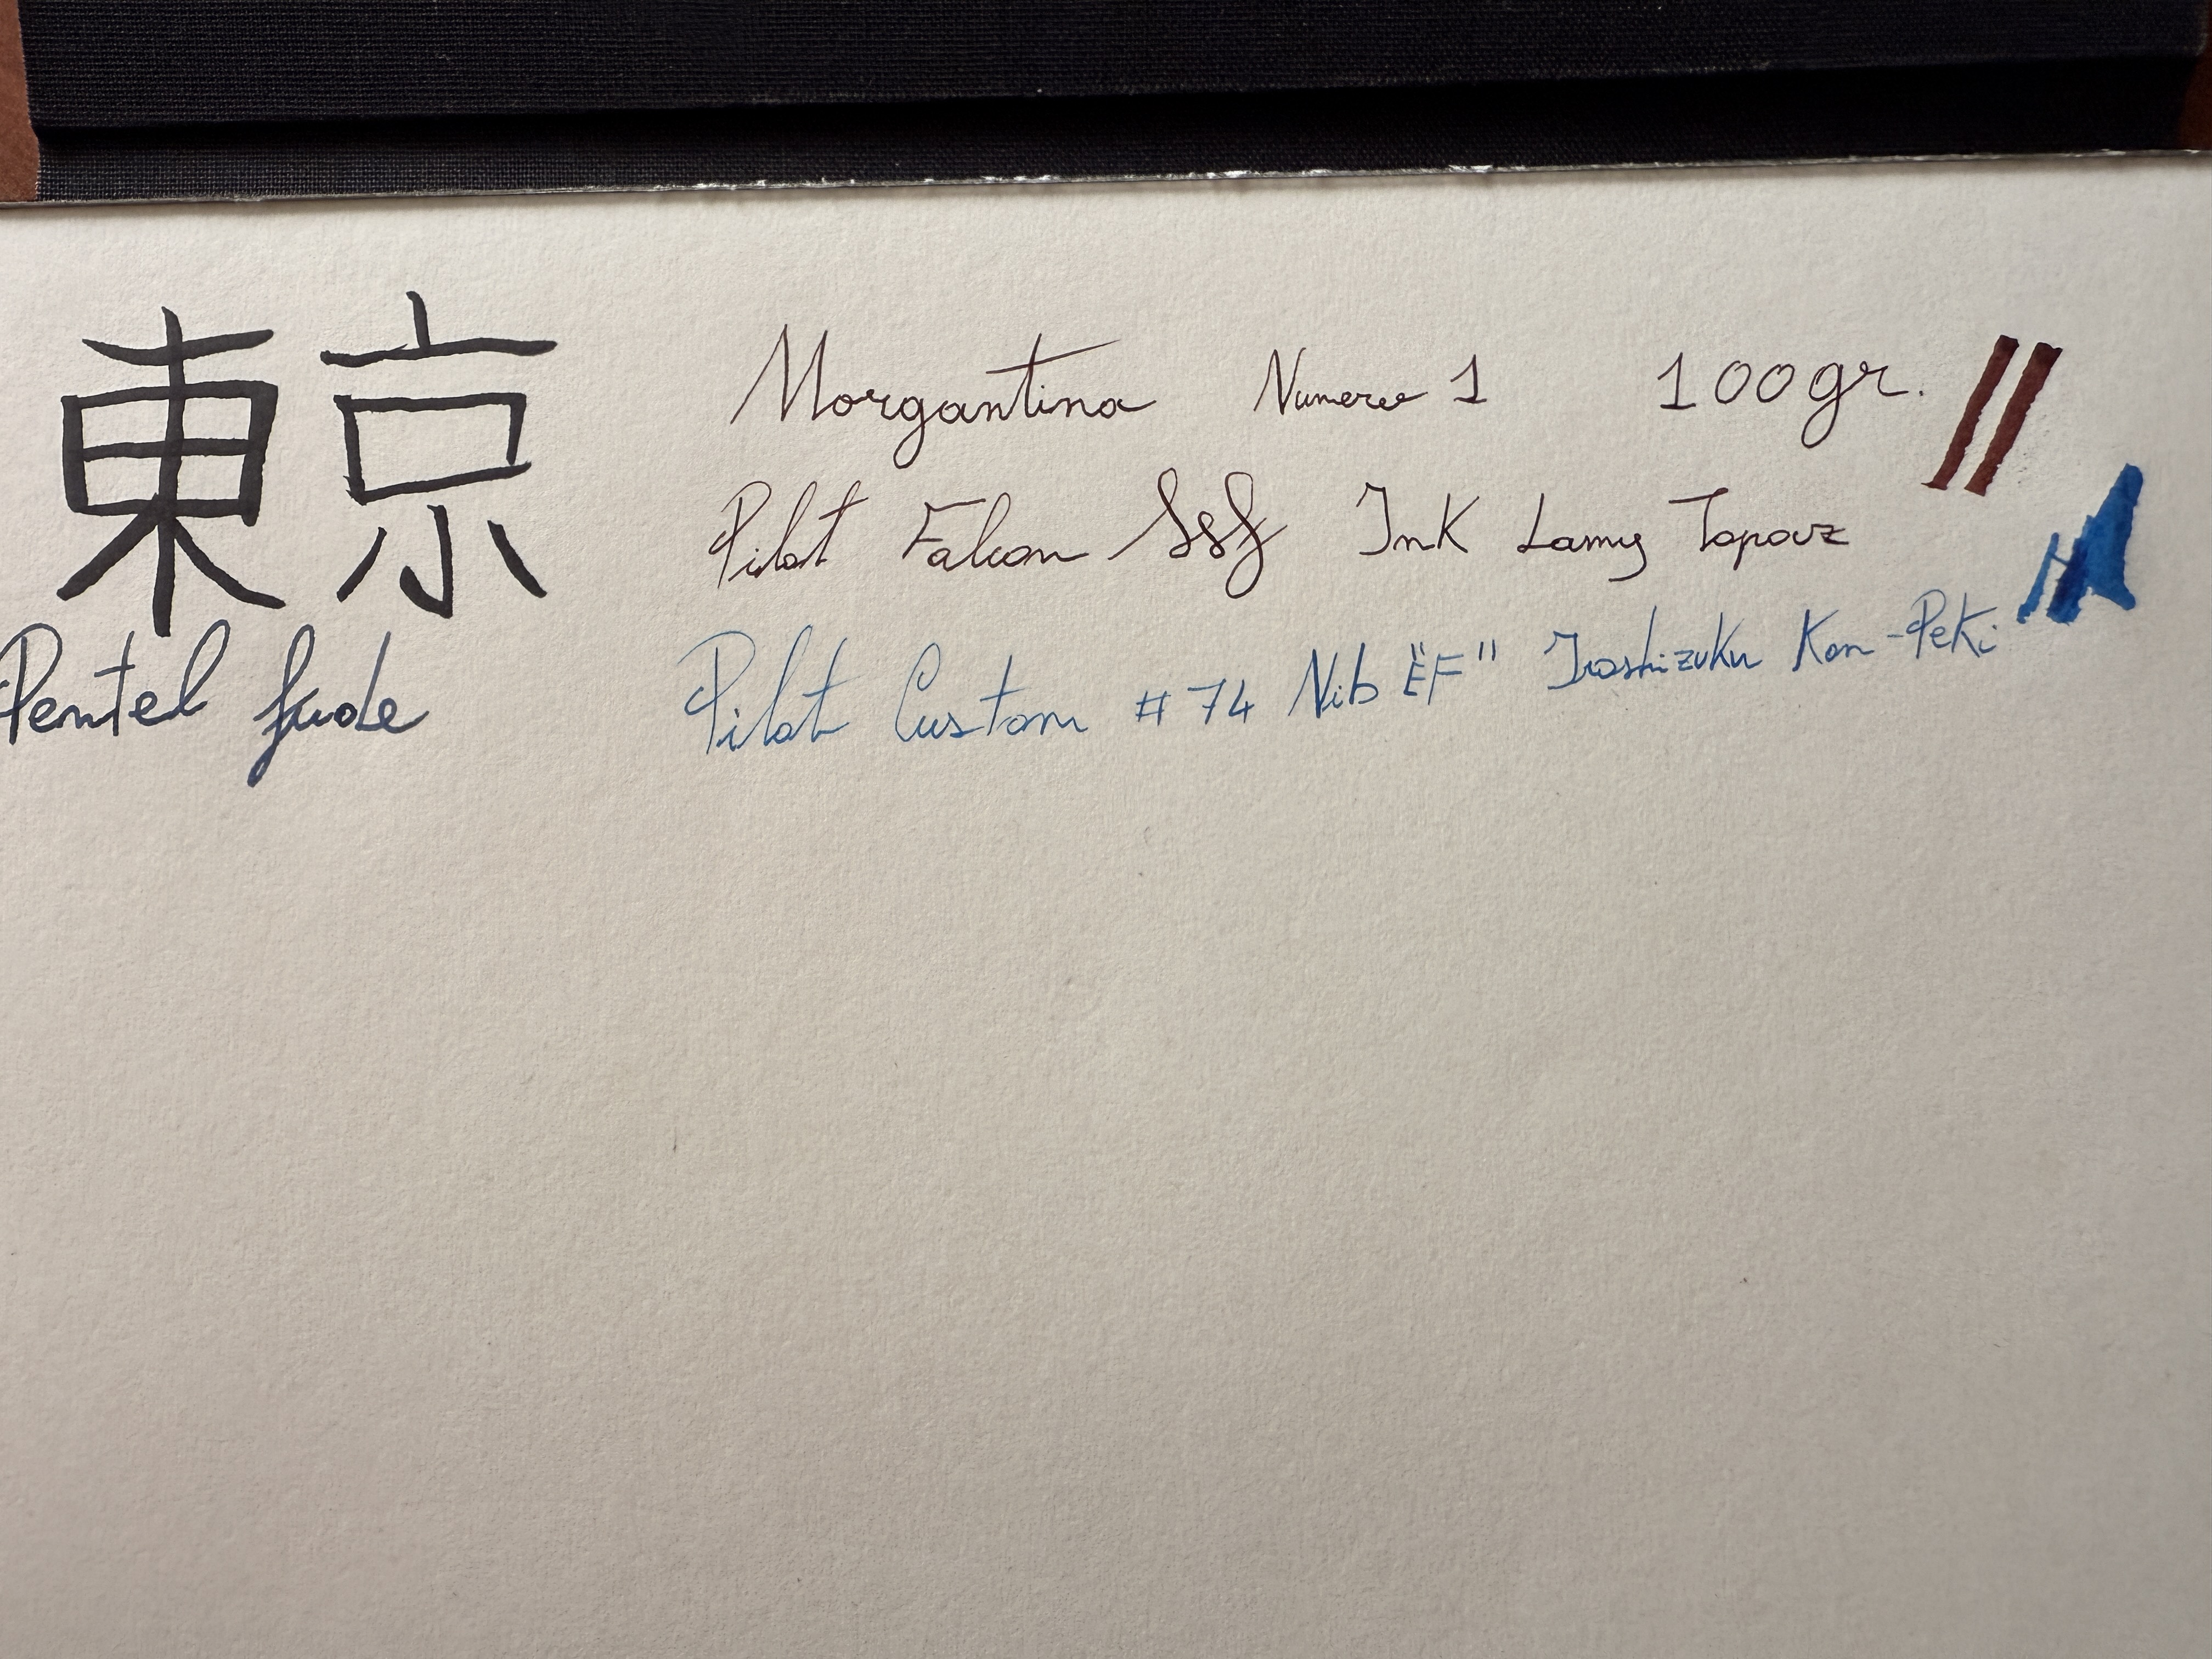 東京
Pentel fude
Morgantina Numero 1 100gr.
Pilot Falcon SEF Ink Lamy Topaz
Pilot Custom #74 Nib "EF" Iroshizuku Kon-Peki